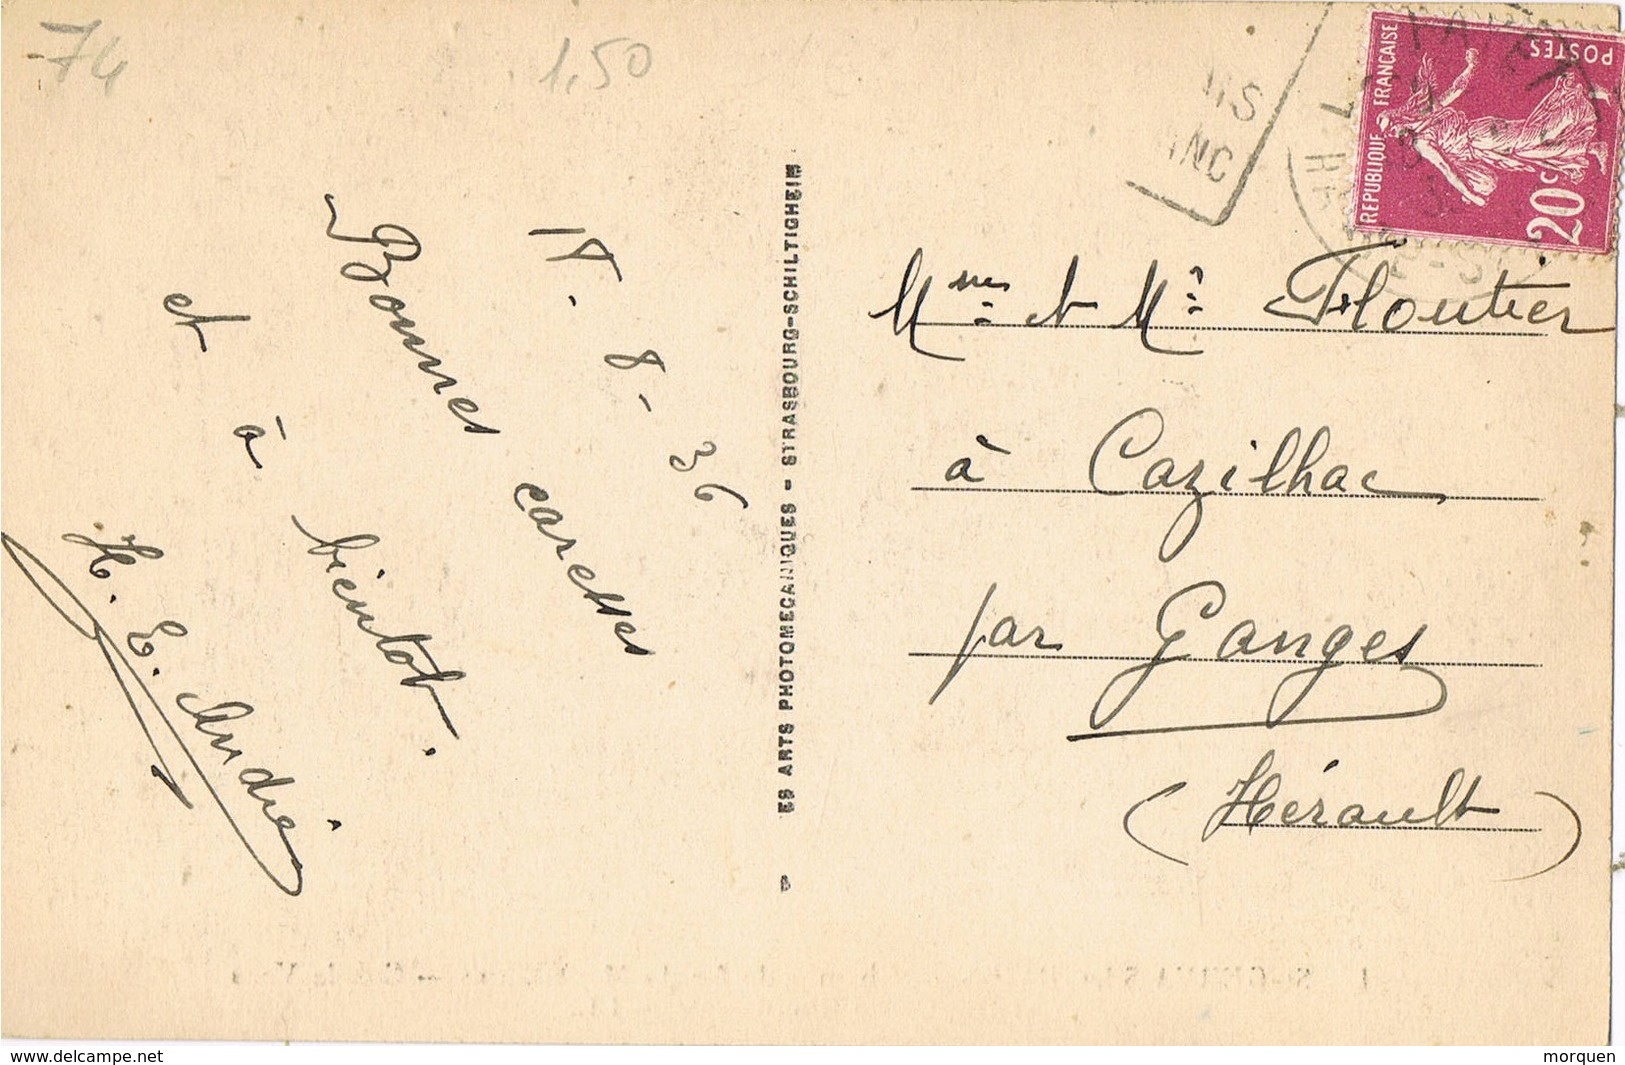 74
1,50
18-8-36
Bonnes caresses
et à bientôt.
H. E. André
ES ARTS PHOTOMECANIQUES - STRASBOURG-SCHILTIGHEIM
REPUBLIQUE FRANÇAISE
POSTES
20c
Mme et Mr Floutier
à Cazilhac
par Ganges
(Hérault)
www.delcampe.net
morquen